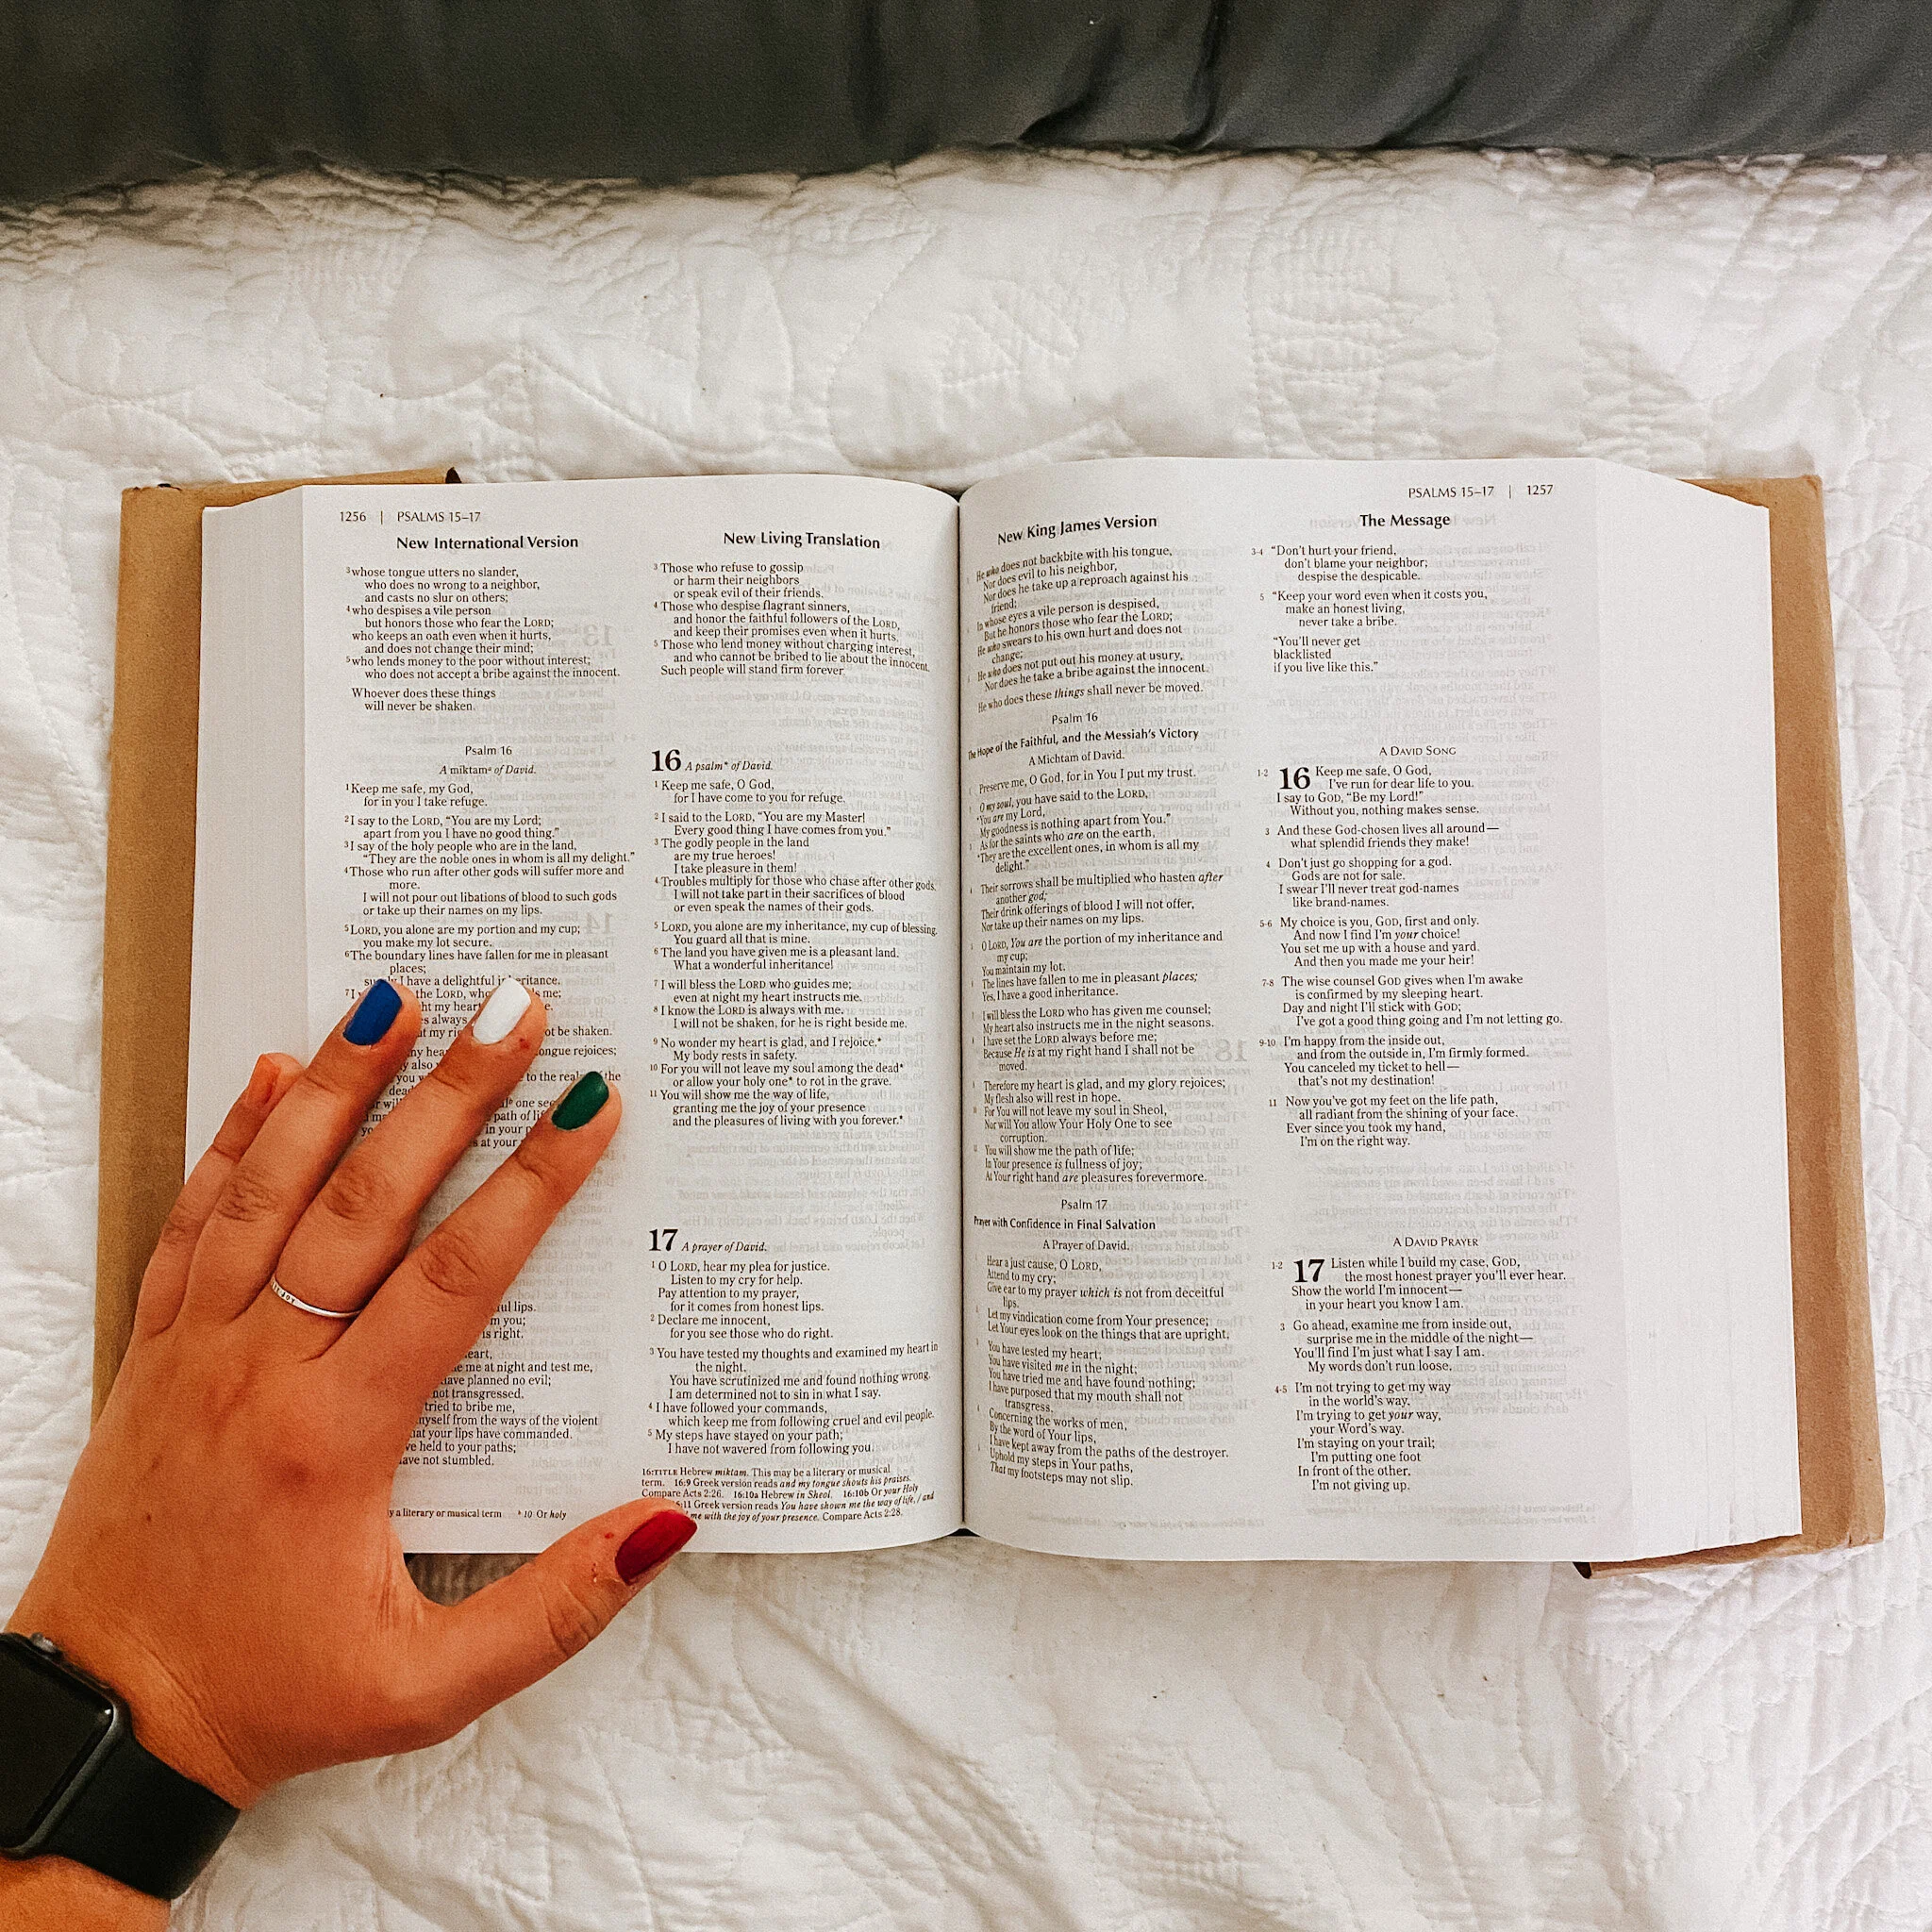 1256 | PSALMS 15–17
New International Version
³whose tongue utters no slander,
who does no wrong to a neighbor,
and casts no slur on others;
⁴who despises a vile person
but honors those who fear the LORD;
who keeps an oath even when it hurts,
and does not change their mind;
⁵who lends money to the poor without interest;
who does not accept a bribe against the innocent.
Whoever does these things
will never be shaken.
Psalm 16
A miktamᵃ of David.
¹Keep me safe, my God,
for in you I take refuge.
²I say to the LORD, “You are my Lord;
apart from you I have no good thing.”
³I say of the holy people who are in the land,
“They are the noble ones in whom is all my delight.”
⁴Those who run after other gods will suffer more and
more.
I will not pour out libations of blood to such gods
or take up their names on my lips.
⁵LORD, you alone are my portion and my cup;
you make my lot secure.
⁶The boundary lines have fallen for me in pleasant
places;
I have a delightful
⁷I the LORD, me;
my heart
always
not be shaken.
tongue rejoices;
also
you to the the
one
path of
in your
at your
lips.
you;
is right.
me at night and test me,
have planned no evil;
not transgressed.
tried to bribe me,
myself from the ways of the violent
your lips have commanded.
held to your paths;
have not stumbled.
a literary or musical term ᵇ 10 Or holy
New Living Translation
³ Those who refuse to gossip
or harm their neighbors
or speak evil of their friends.
⁴ Those who despise flagrant sinners,
and honor the faithful followers of the LORD,
and keep their promises even when it hurts.
⁵ Those who lend money without charging interest,
and who cannot be bribed to lie about the innocent.
Such people will stand firm forever.
16 A psalm* of David.
¹ Keep me safe, O God,
for I have come to you for refuge.
² I said to the LORD, “You are my Master!
Every good thing I have comes from you.”
³ The godly people in the land
are my true heroes!
I take pleasure in them!
⁴ Troubles multiply for those who chase after other gods.
I will not take part in their sacrifices of blood
or even speak the names of their gods.
⁵ LORD, you alone are my inheritance, my cup of blessing.
You guard all that is mine.
⁶ The land you have given me is a pleasant land.
What a wonderful inheritance!
⁷ I will bless the LORD who guides me;
even at night my heart instructs me.
⁸ I know the LORD is always with me.
I will not be shaken, for he is right beside me.
⁹ No wonder my heart is glad, and I rejoice.*
My body rests in safety.
¹⁰ For you will not leave my soul among the dead*
or allow your holy one* to rot in the grave.
¹¹ You will show me the way of life,
granting me the joy of your presence
and the pleasures of living with you forever.*
17 A prayer of David.
¹ O LORD, hear my plea for justice.
Listen to my cry for help.
Pay attention to my prayer,
for it comes from honest lips.
² Declare me innocent,
for you see those who do right.
³ You have tested my thoughts and examined my heart in
the night.
You have scrutinized me and found nothing wrong.
I am determined not to sin in what I say.
⁴ I have followed your commands,
which keep me from following cruel and evil people.
⁵ My steps have stayed on your path;
I have not wavered from following you.
16:TITLE Hebrew miktam. This may be a literary or musical
term. 16:9 Greek version reads and my tongue shouts his praises.
Compare Acts 2:26. 16:10a Hebrew in Sheol. 16:10b Or your Holy
Greek version reads You have shown me the way of life, / and
me with the joy of your presence. Compare Acts 2:28.
New King James Version
He who does not backbite with his tongue,
Nor does evil to his neighbor,
Nor does he take up a reproach against his
friend;
In whose eyes a vile person is despised,
But he honors those who fear the LORD;
He who swears to his own hurt and does not
change;
He who does not put out his money at usury,
Nor does he take a bribe against the innocent.
He who does these things shall never be moved.
Psalm 16
The Hope of the Faithful, and the Messiah's Victory
A Michtam of David.
Preserve me, O God, for in You I put my trust.
O my soul, you have said to the LORD,
“You are my Lord,
My goodness is nothing apart from You.”
As for the saints who are on the earth,
“They are the excellent ones, in whom is all my
delight.”
Their sorrows shall be multiplied who hasten after
another god;
Their drink offerings of blood I will not offer,
Nor take up their names on my lips.
O LORD, You are the portion of my inheritance and
my cup;
You maintain my lot.
The lines have fallen to me in pleasant places;
Yes, I have a good inheritance.
I will bless the LORD who has given me counsel;
My heart also instructs me in the night seasons.
I have set the LORD always before me;
Because He is at my right hand I shall not be
moved.
Therefore my heart is glad, and my glory rejoices;
My flesh also will rest in hope.
For You will not leave my soul in Sheol,
Nor will You allow Your Holy One to see
corruption.
You will show me the path of life;
In Your presence is fullness of joy;
At Your right hand are pleasures forevermore.
Psalm 17
Prayer with Confidence in Final Salvation
A Prayer of David.
Hear a just cause, O LORD,
Attend to my cry;
Give ear to my prayer which is not from deceitful
lips.
Let my vindication come from Your presence;
Let Your eyes look on the things that are upright.
You have tested my heart;
You have visited me in the night;
You have tried me and have found nothing;
I have purposed that my mouth shall not
transgress.
Concerning the works of men,
By the word of Your lips,
I have kept away from the paths of the destroyer.
Uphold my steps in Your paths,
That my footsteps may not slip.
PSALMS 15–17 | 1257
The Message
3-4 “Don't hurt your friend,
don't blame your neighbor;
despise the despicable.
5 “Keep your word even when it costs you,
make an honest living,
never take a bribe.
“You'll never get
blacklisted
if you live like this.”
A DAVID SONG
1-2 16 Keep me safe, O God,
I've run for dear life to you.
I say to GOD, “Be my Lord!”
Without you, nothing makes sense.
3 And these God-chosen lives all around—
what splendid friends they make!
4 Don't just go shopping for a god.
Gods are not for sale.
I swear I'll never treat god-names
like brand-names.
5-6 My choice is you, GOD, first and only.
And now I find I'm your choice!
You set me up with a house and yard.
And then you made me your heir!
7-8 The wise counsel GOD gives when I'm awake
is confirmed by my sleeping heart.
Day and night I'll stick with GOD;
I've got a good thing going and I'm not letting go.
9-10 I'm happy from the inside out,
and from the outside in, I'm firmly formed.
You canceled my ticket to hell—
that's not my destination!
11 Now you've got my feet on the life path,
all radiant from the shining of your face.
Ever since you took my hand,
I'm on the right way.
A DAVID PRAYER
1-2 17 Listen while I build my case, GOD,
the most honest prayer you'll ever hear.
Show the world I'm innocent—
in your heart you know I am.
3 Go ahead, examine me from inside out,
surprise me in the middle of the night—
You'll find I'm just what I say I am.
My words don't run loose.
4-5 I'm not trying to get my way
in the world's way.
I'm trying to get your way,
your Word's way.
I'm staying on your trail;
I'm putting one foot
In front of the other.
I'm not giving up.